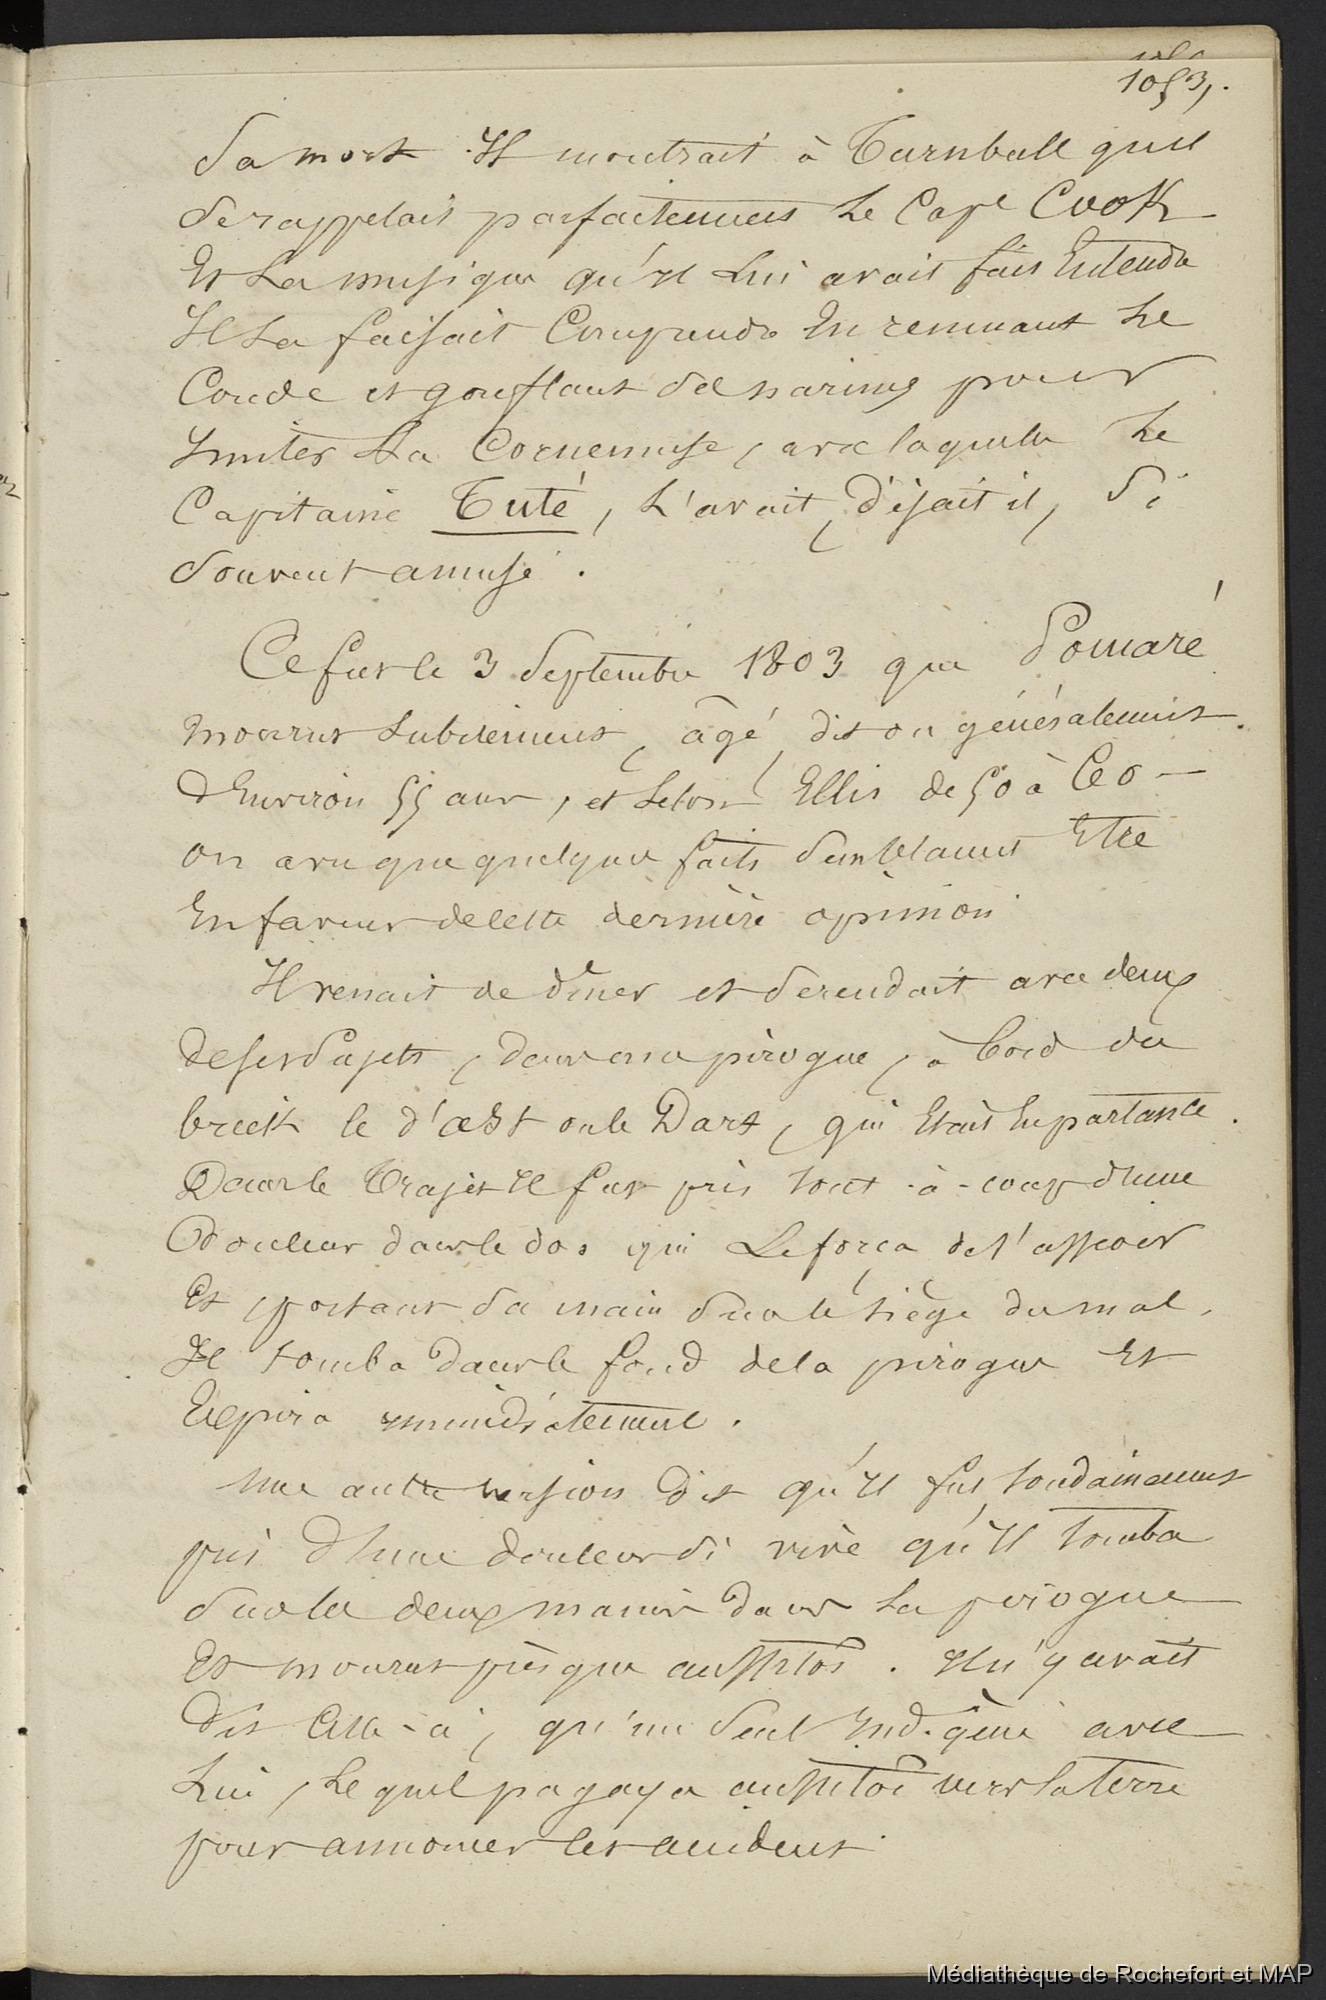 1053.
Sa mort. Il montrait à Turnbull qu'il
se rappelait parfaitement le Cape Cook
Et La musique qu'Il lui avait fait Entendre
Il La faisait Comprendre En remuant Le
Coude et gonflant ses narines pour
Imiter La Cornemuse, avec laquelle Le
Capitaine Tuté, L'avait, disait il, Si
Souvent amusé.
Ce fut le 3 Septembre 1803 que Pomaré
mourut Subitement, âgé, dit on généralement.
d'Environ 55 ans, et Selon Ellis de 50 à 60 —
on a vu que quelques faits Semblaient Etre
En faveur de cette dernière opinion
Il venait de dîner et se rendait avec deux
de ses Sujets, dans sa pirogue, à bord du
brick le d'art ou le Dart, qui Etait En partance.
Dans le Trajet Il fut pris tout-à-coup d'une
Douleur dans le dos qui Le força de s'asseoir
Et, portant Sa main Sur le siège du mal,
Il tomba Dans le fond de la pirogue Et
Expira immédiatement.
Une autre version Dit qu'Il fut soudainement
pris d'Une douleur Si vive qu'Il tomba
Sur les deux mains Dans La pirogue
Et mourut presque aussitôt. Il n'y avait
Dit Celle-ci, qu'un Seul Indigène avec
Lui, Lequel pagaya aussitôt vers la Terre
pour annoncer cet accident.
Médiathèque de Rochefort et MAP